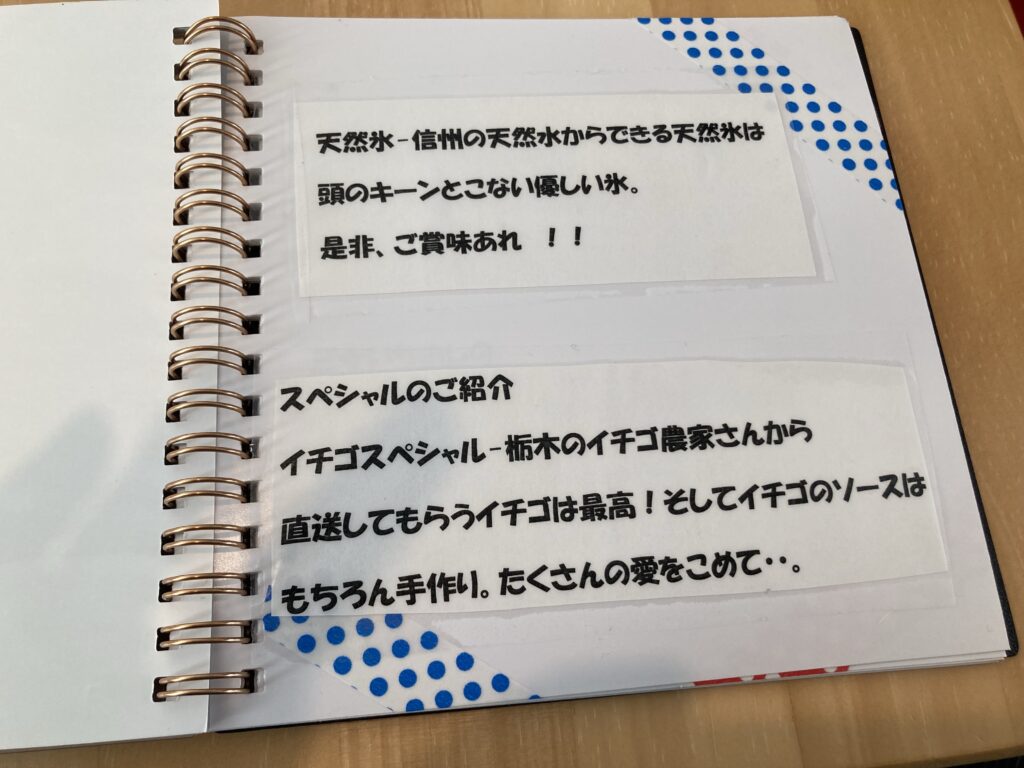 天然氷-信州の天然水からできる天然氷は
頭のキーンとこない優しい氷。
是非、ご賞味あれ　！！
スペシャルのご紹介
イチゴスペシャル-栃木のイチゴ農家さんから
直送してもらうイチゴは最高！そしてイチゴのソースは
もちろん手作り。たくさんの愛をこめて・・。